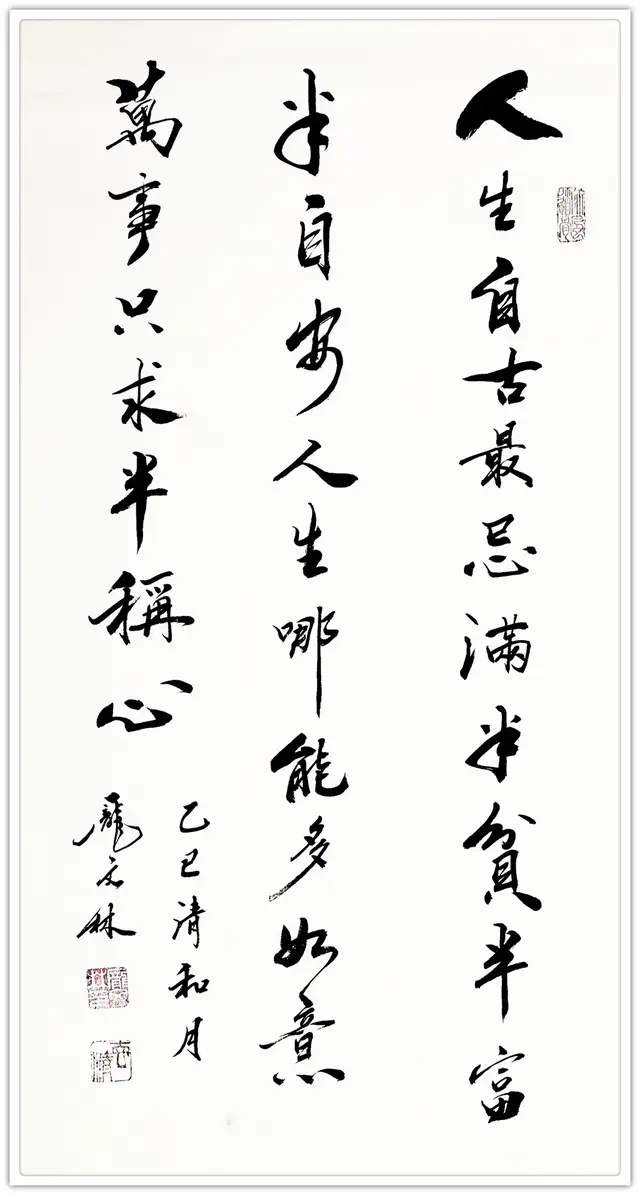 人生自古最忌滿半貧半富
半自安人生哪能多如意
萬事只求半稱心
乙巳清和月
龐文林